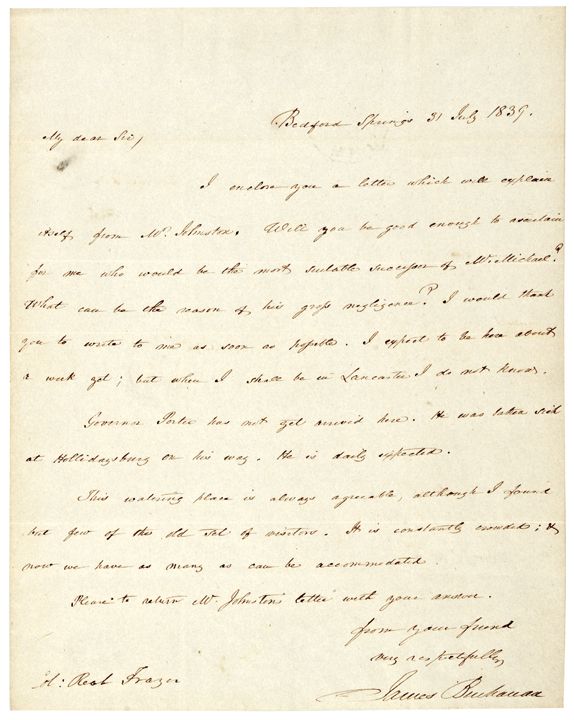 Bedford Springs 31 July 1839.
My dear Sir,
I enclose you a letter which will explain
itself from Mr. Johnston. Will you be good enough to ascertain
for me who would be the most suitable successor of Mr. Michael?
What can be the reason of his gross negligence? I would thank
you to write to me as soon as possible. I expect to be here about
a week yet; but when I shall be in Lancaster I do not know.
Governor Porter has not yet arrived here. He was taken sick
at Hollidaysburg on his way. He is daily expected.
This watering place is always agreeable, although I found
but few of the old set of visitors. It is constantly crowded; &
now we have as many as can be accommodated.
Please to return Mr. Johnston's letter with your answer.
from your friend
very respectfully
James Buchanan
Reah Frazer